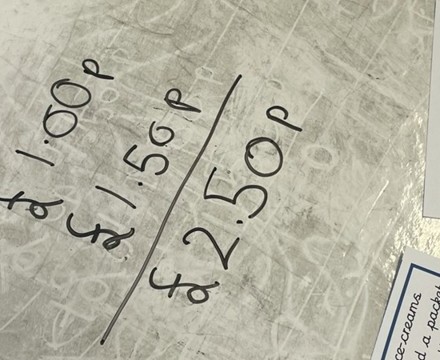 £1.00p
£1.50p
£2.50p
ce-creams
d a packet